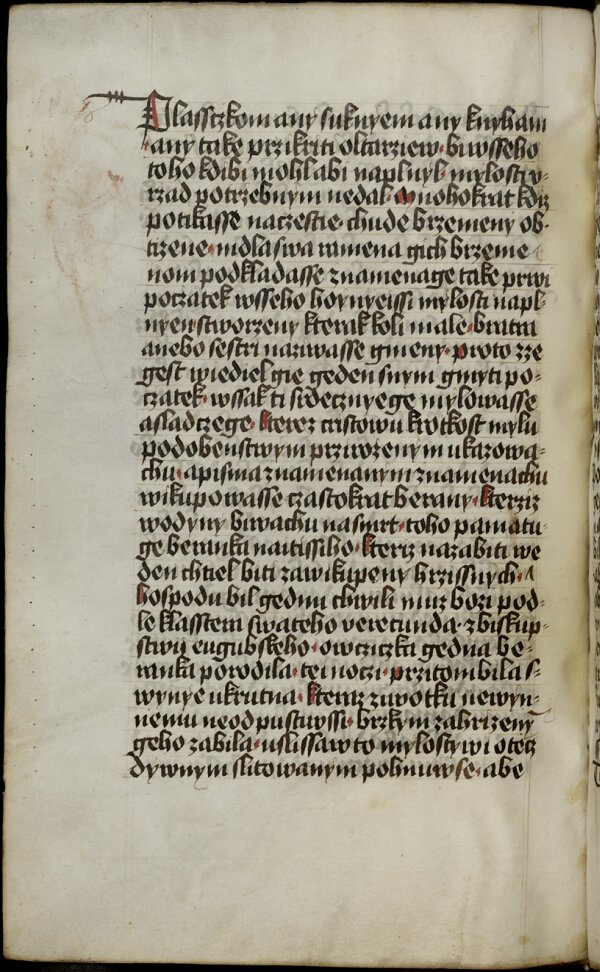 Plassczkom any suknyem any knyham
any take przikriti oltarziew· biwsseho
toho kdibi mohl abi naplnyl· mylosti v-
rzad potrzebnym nedal· Mnohokrat kdiz
potikasse naczestie· chude brzemeny ob-
tizene· mdlaswa ramena gich brzeme
nom podkladasse znamenage take prwi
poczatek wsseho hoynyeissi mylosti napl-
nyen stworzeny kterak koli male· bratra
anebo sestri naziwasse gmeny· proto zze
gest wiediel gie geden snym gmyti po-
czatek· wssak ti srdecznyege mylowasse
asladczege· kterez cristowu krotkost mylu
podobenstwym przirozenym ukazowa-
chu· apisma znamenanym znamenachu
wikupowasse czastokrat berany· kteziz
wodyny biwachu nasmrt· toho pamatu-
ge beranka naitissiho· kteriz nazabiti we
den chtiel biti zawikupeny hrzissnych· A
hospodu bil gednu chwili muz bozi pod-
le klasstera swateho verecunda· zbiskup-
stwij eugubskeho· owcziczka gedna be-
ranka porodila· tei noczi· przitom bila s-
wynye ukrutna· kteraz zuwotku newyn-
nemu neodpustiwssi· brzkym zahrizeny
geho zabila· uslissaw to mylostywi otecz
dywnym slitowanym pohnuw se· abe